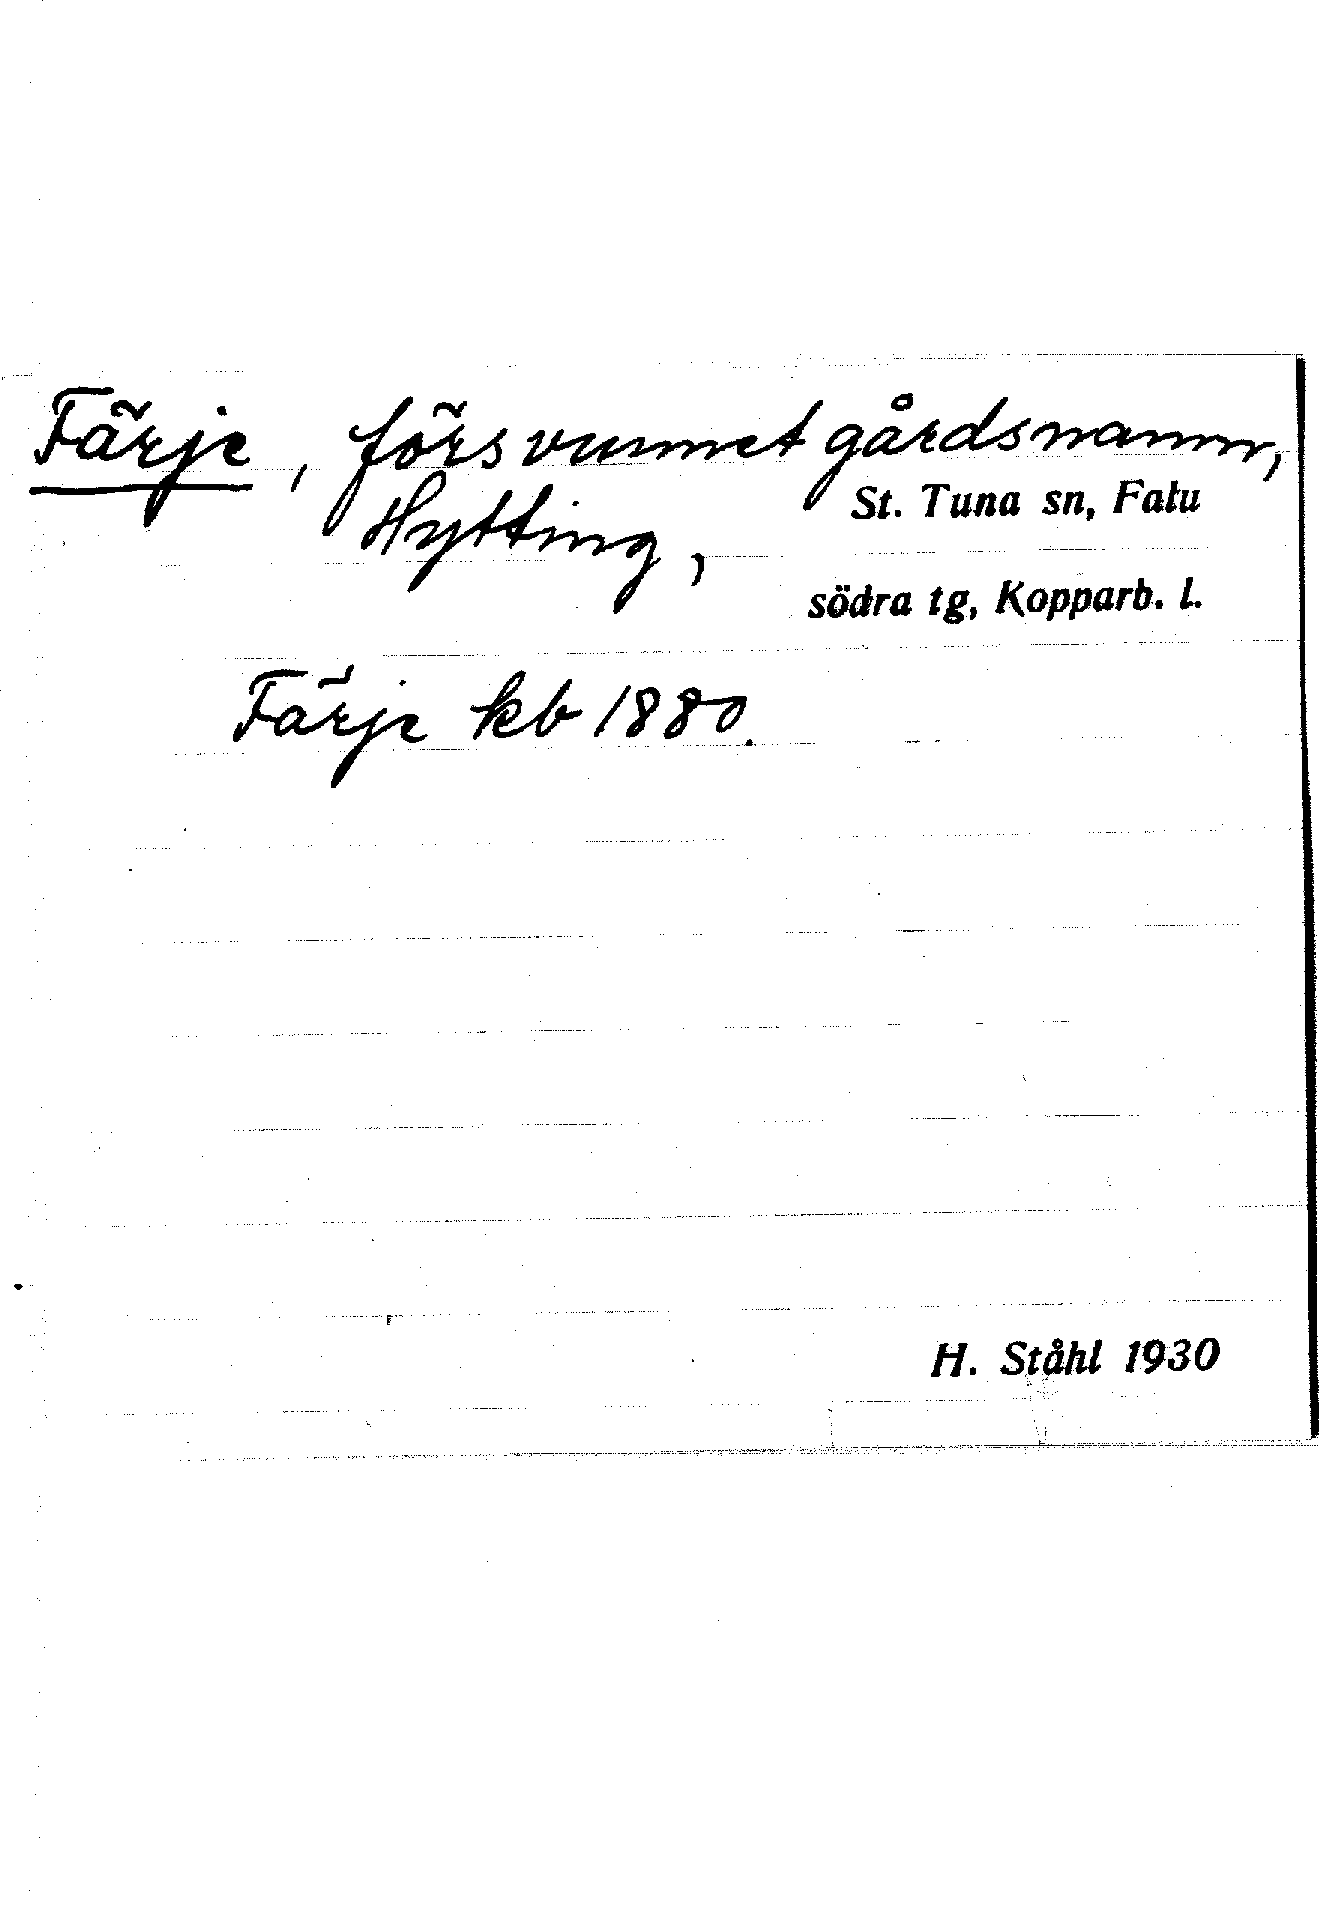 Färje, försvunnet gårdsnamn,
Hytting, St. Tuna sn, Falu
södra tg, Kopparb. l.
Färje kb 1880.
H. Ståhl 1930